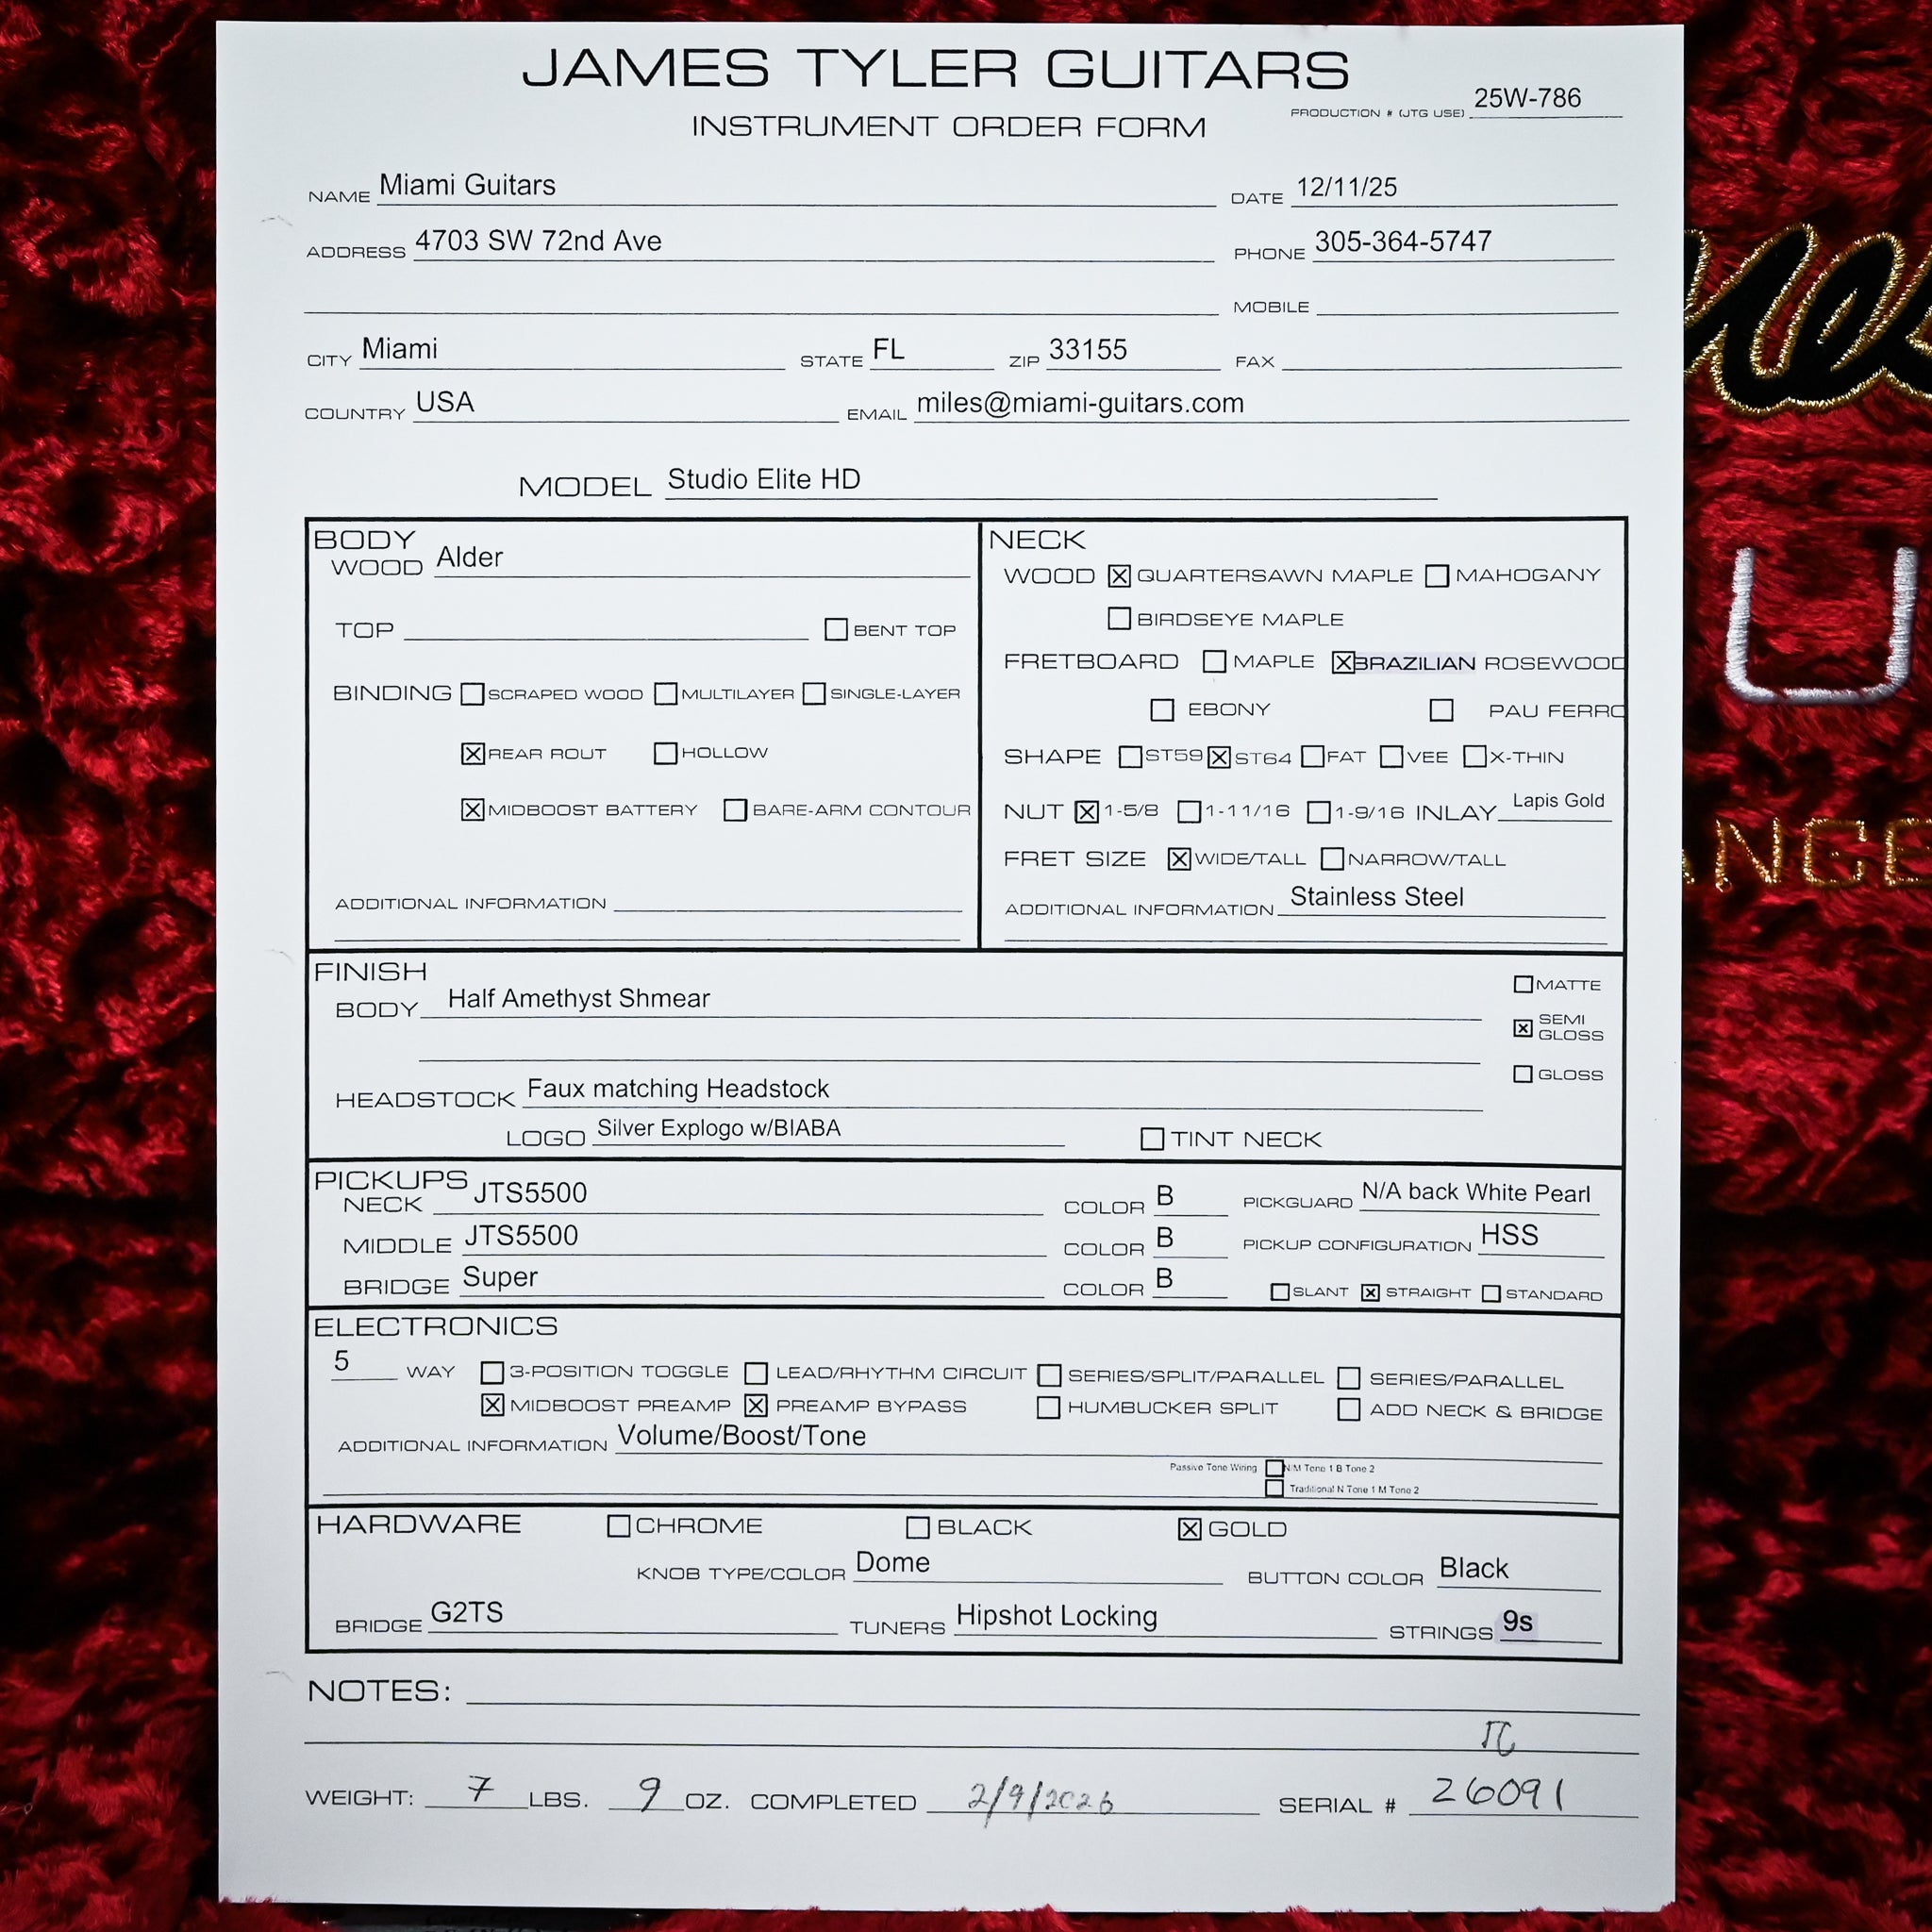 JAMES TYLER GUITARS
PRODUCTION # (JTG USE) 25W-786
INSTRUMENT ORDER FORM
NAME Miami Guitars DATE 12/11/25
ADDRESS 4703 SW 72nd Ave PHONE 305-364-5747
MOBILE
CITY Miami STATE FL ZIP 33155 FAX
COUNTRY USA EMAIL miles@miami-guitars.com
MODEL Studio Elite HD
BODY
WOOD Alder
TOP BENT TOP
BINDING SCRAPED WOOD MULTILAYER SINGLE-LAYER
☒ REAR ROUT HOLLOW
☒ MIDBOOST BATTERY BARE-ARM CONTOUR
ADDITIONAL INFORMATION
NECK
WOOD ☒ QUARTERSAWN MAPLE MAHOGANY
BIRDSEYE MAPLE
FRETBOARD MAPLE ☒ BRAZILIAN ROSEWOOD
EBONY PAU FERRO
SHAPE ST59 ☒ ST64 FAT VEE X-THIN
NUT ☒ 1-5/8 1-11/16 1-9/16 INLAY Lapis Gold
FRET SIZE ☒ WIDE/TALL NARROW/TALL
ADDITIONAL INFORMATION Stainless Steel
FINISH
BODY Half Amethyst Shmear
MATTE
☒ SEMI GLOSS
GLOSS
HEADSTOCK Faux matching Headstock
LOGO Silver Explogo w/BIABA TINT NECK
PICKUPS
NECK JTS5500 COLOR B PICKGUARD N/A back White Pearl
MIDDLE JTS5500 COLOR B PICKUP CONFIGURATION HSS
BRIDGE Super COLOR B SLANT ☒ STRAIGHT STANDARD
ELECTRONICS
5 WAY 3-POSITION TOGGLE LEAD/RHYTHM CIRCUIT SERIES/SPLIT/PARALLEL SERIES/PARALLEL
☒ MIDBOOST PREAMP ☒ PREAMP BYPASS HUMBUCKER SPLIT ADD NECK & BRIDGE
ADDITIONAL INFORMATION Volume/Boost/Tone
Passive Tone Wiring N/M Tone 1 B Tone 2
Traditional N Tone 1 M Tone 2
HARDWARE CHROME BLACK ☒ GOLD
KNOB TYPE/COLOR Dome BUTTON COLOR Black
BRIDGE G2TS TUNERS Hipshot Locking STRINGS 9s
NOTES:
WEIGHT: 7 LBS. 9 OZ. COMPLETED 2/9/2026 SERIAL # 26091